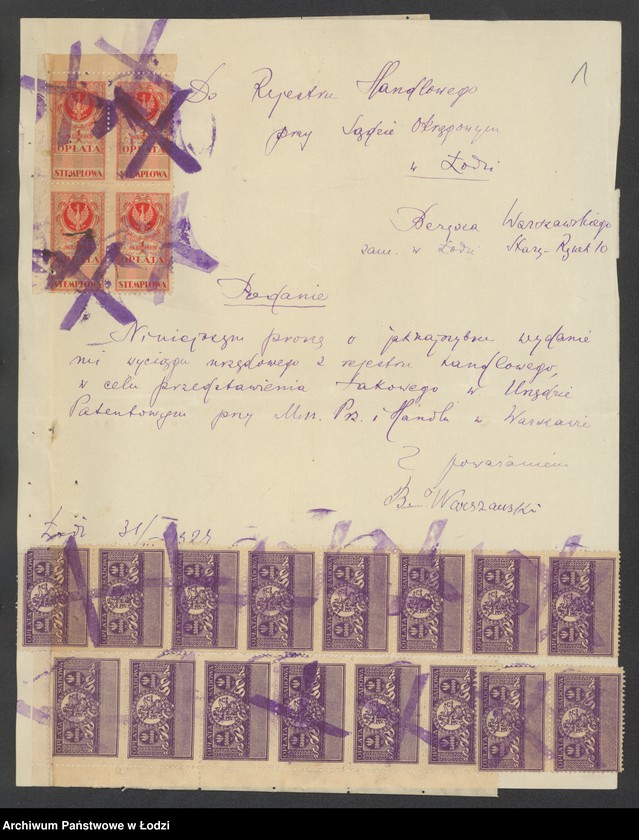 1
Do Rejestru Handlowego
przy Sądzie Okręgowym
w Łodzi
Warszawskiego
zam. w Łodzi Stary-Rynek 10
Podanie
Niniejszym proszę o jaknajszybsze wydanie
mi wyciągu urzędowego z rejestru handlowego,
w celu przedstawienia takowego w Urzędzie
Patentowym przy Min. Prz. i Handlu w Warszawie
Z poważaniem
B. Warszawski
Łódź 31/
OPŁATA
STEMPLOWA
OPŁATA
STEMPLOWA
OPŁATA
STEMPLOWA
OPŁATA
STEMPLOWA
Archiwum Państwowe w Łodzi